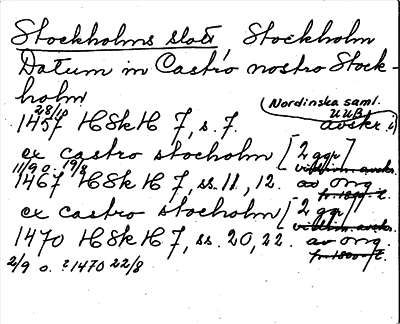 Stockholms slott, Stockholm
Datum in Castro nostro Stock-
holm
28/4
(Nordinska saml.
UUB)
1457 HSkH 7, s. 7. avskr. i)
ex castro stocholm [2 ggr]
11/9 o. 19/8
1467 HSkH 7, ss. 11, 12. av orig.
ex castro stocholm [2 ggr]
1470 HSkH 7, ss. 20, 22. av orig.
2/9 o. ? 1470 22/8